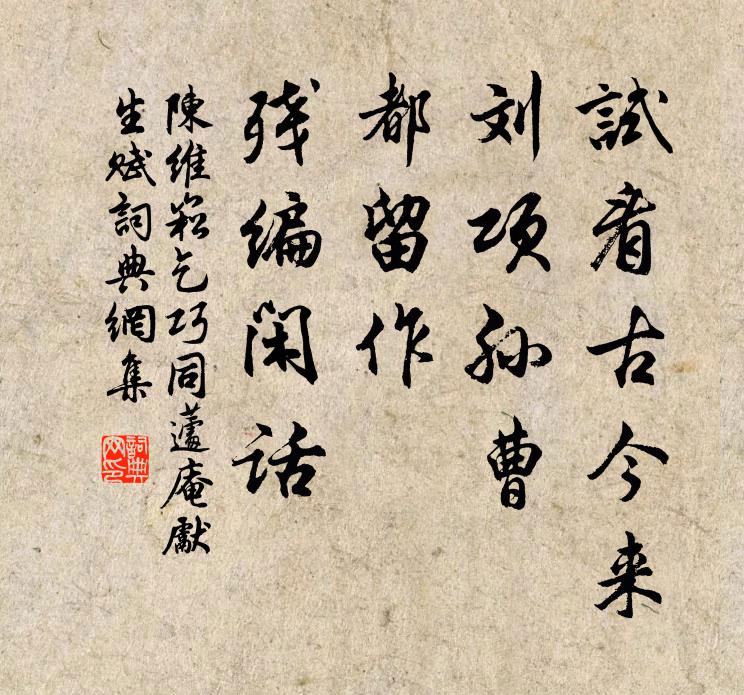 試看古今来
刘项孙曹
都留作
残编闲话
陳維崧乞巧同蘧庵獻
生賦詞典網集
詞典
网印